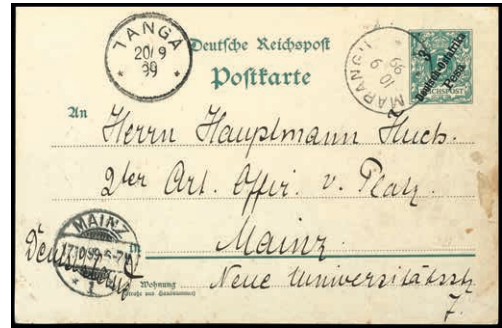 TANGA
20/9
99
Deutsche Reichspost
Postkarte
MARANGU
10
9
99
3
Deutsch-Ostafrika
Pesa
REICHSPOST
An
Herrn Hauptmann Huch.
2ter Art. Offir. v. Platz.
Mainz.
MAINZ
17.10.99.6-7
1
Wohnung
(Straße und Hausnummer)
Neue Universitätsstr
7.